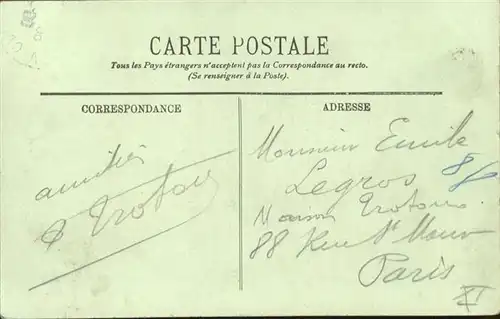 CARTE POSTALE
Tous les Pays étrangers n'acceptent pas la Correspondance au recto.
(Se renseigner à la Poste).
CORRESPONDANCE
ADRESSE
amitiés
Trotoux
Monsieur Emile
Legros
Maison Trotoux
88 Rue St Maur
Paris
XI